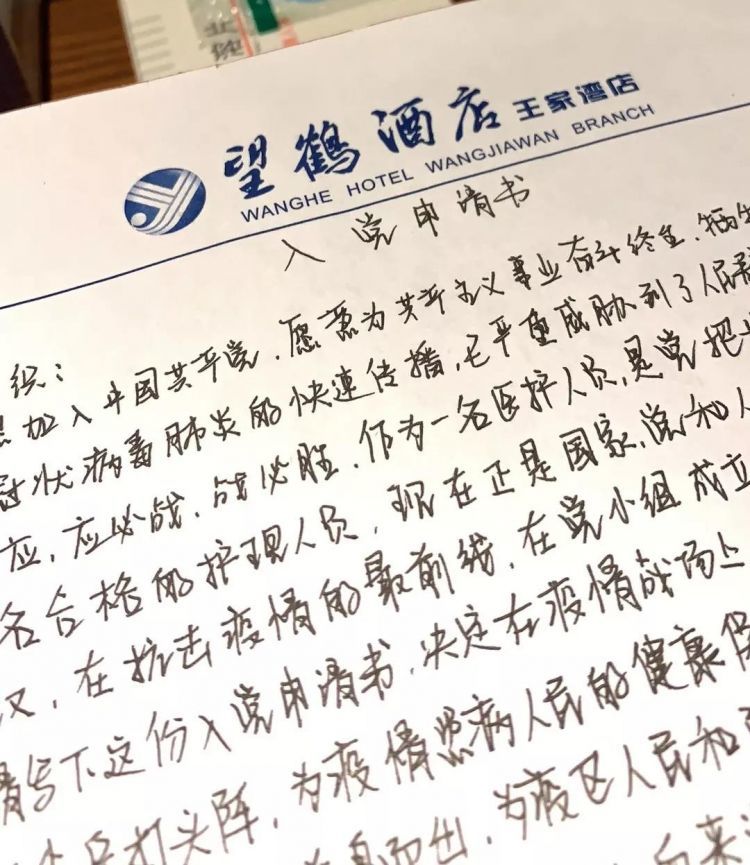 望鹤酒店 王家湾店
WANGHE HOTEL WANGJIAWAN BRANCH
入党申请书
织：
加入中国共产党，愿意为共产主义事业奋斗终生，牺牲
冠状病毒肺炎的快速传播，已严重威胁到了人民
应，应必战，战必胜，作为一名医护人员，是党把
名合格的护理人员，现在正是国家、党和人
汉，在抗击疫情的最前线，在党小组成立
情写下这份入党申请书，决定在疫情战场上
打头阵，为疫情照病人民的健康保
而出，为疫区人民和
来